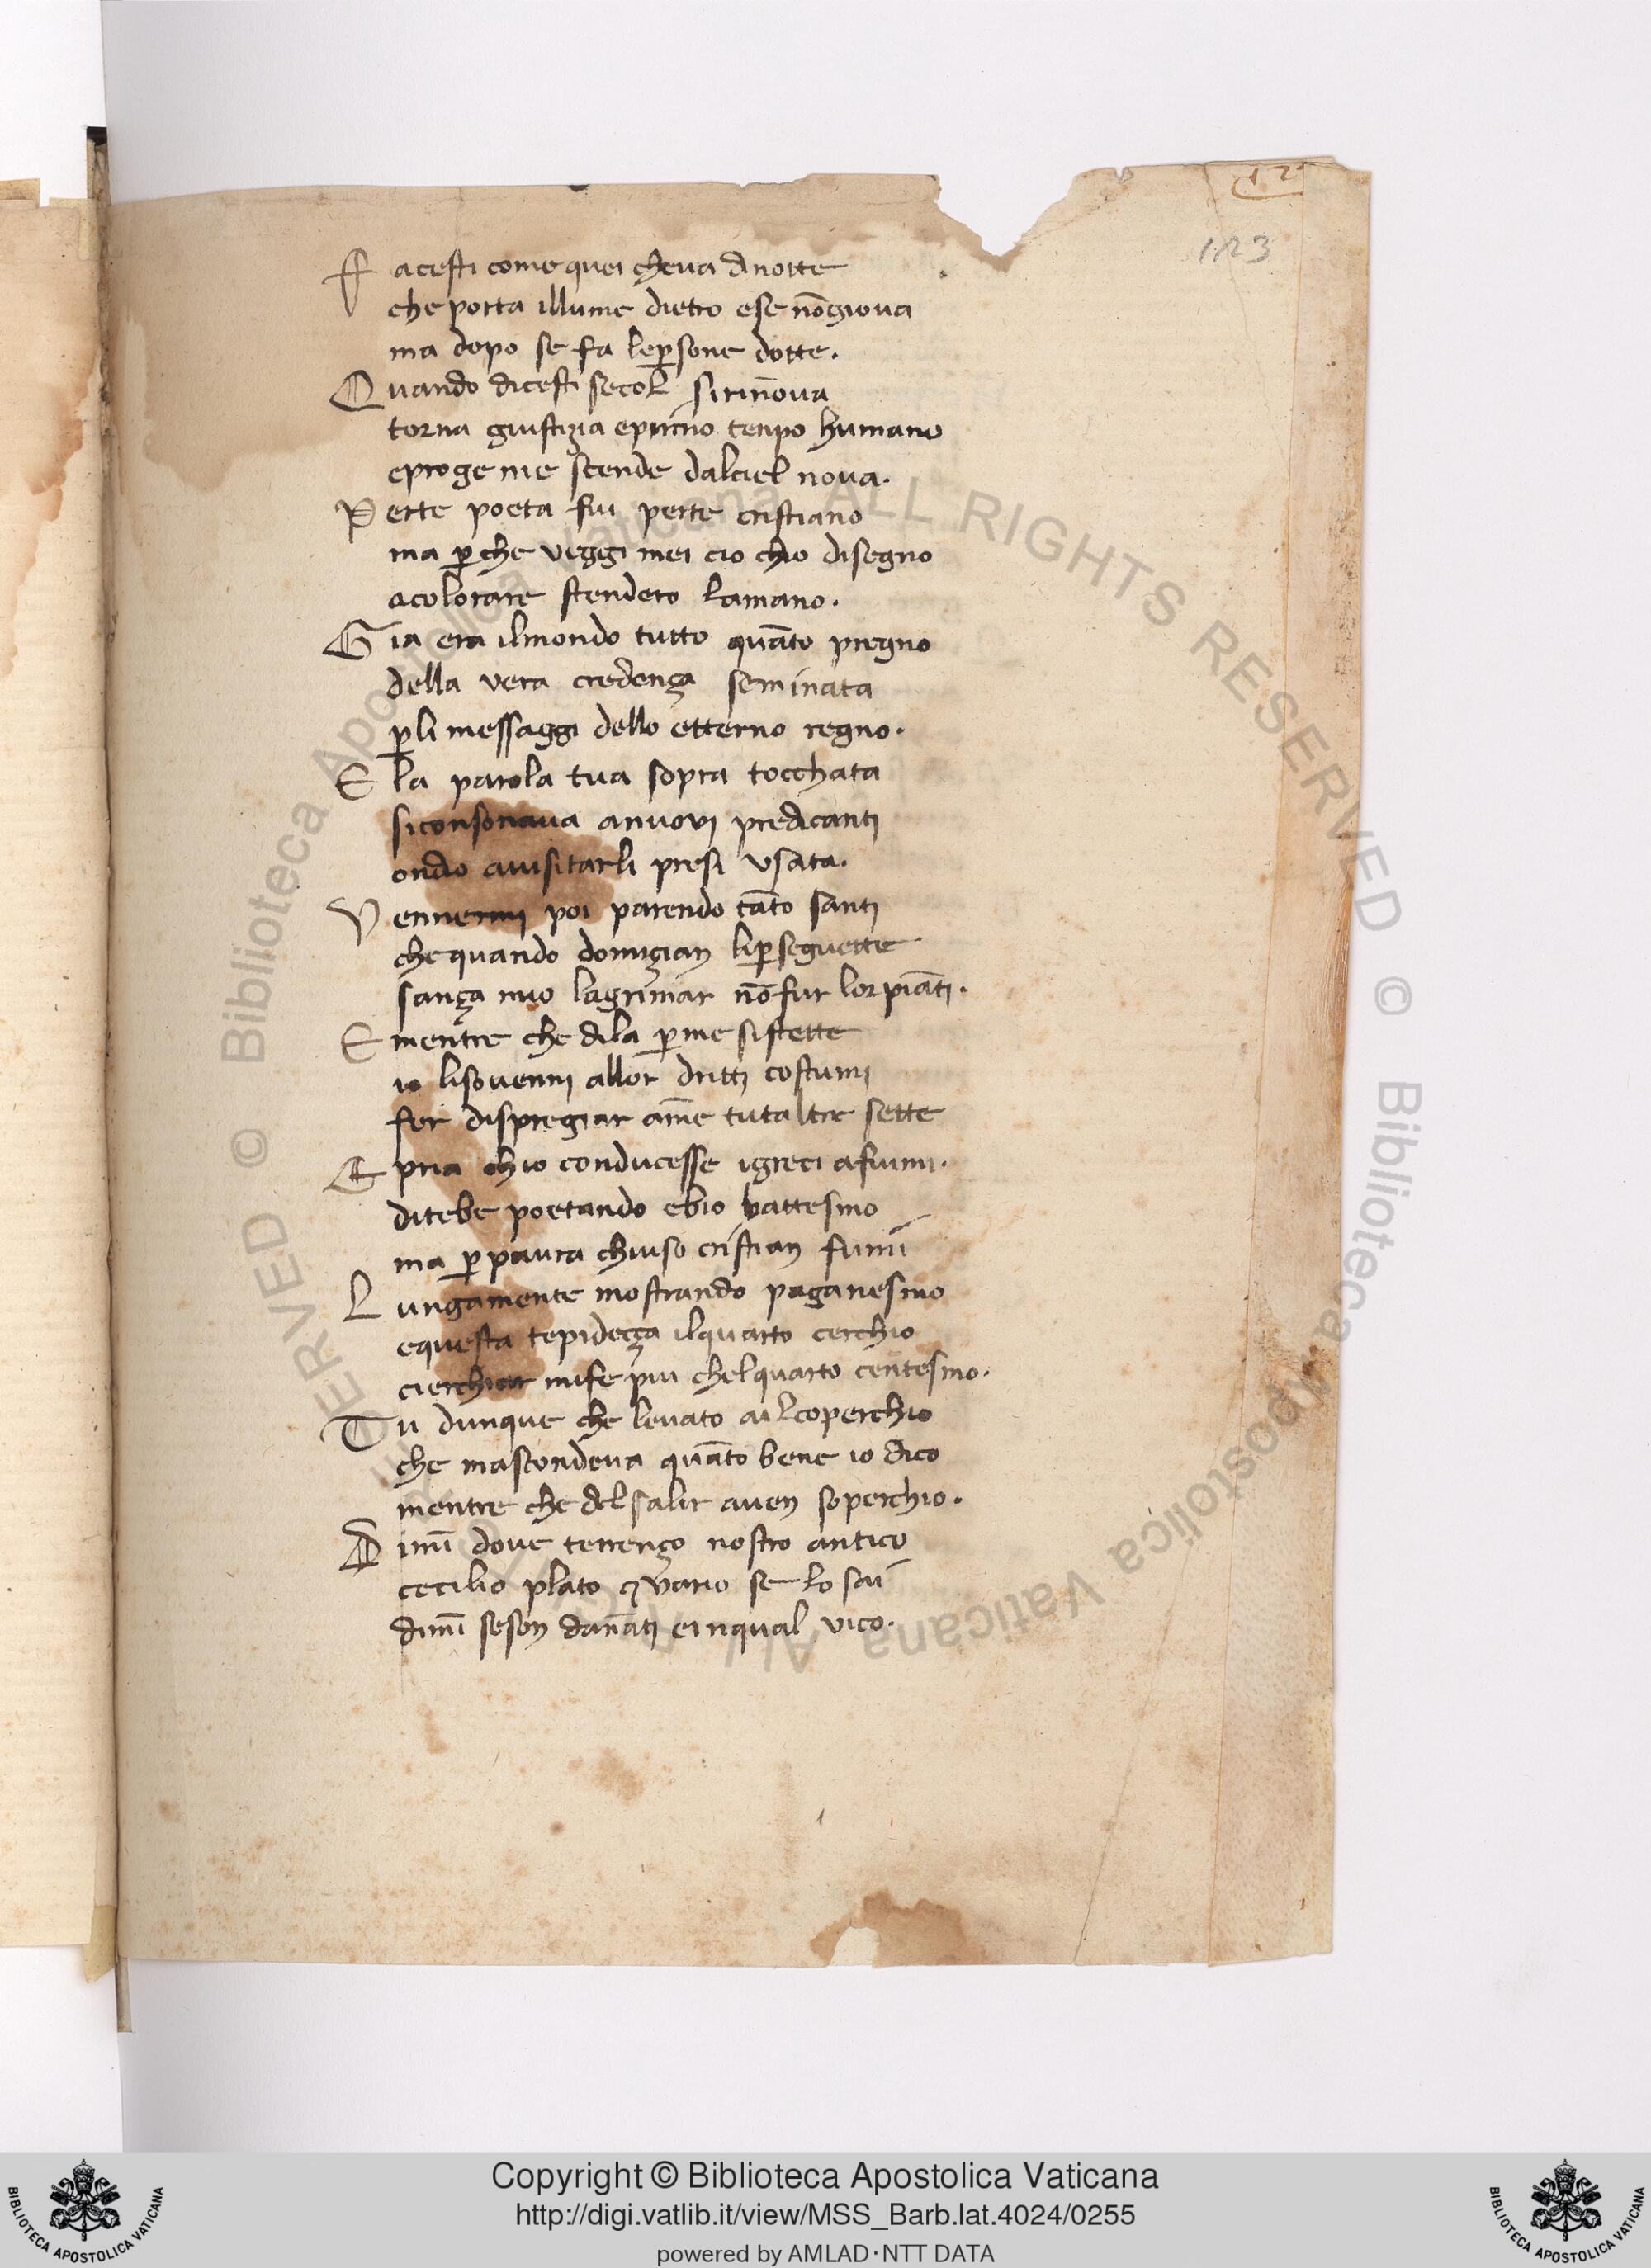 12
123
F acesti come quei cheua dinotte
che porta illume dietro ese nōgioua
ma dopo se fa leꝑsone dotte.
Q uando dicesti secol sirinnoua
torna giustiзia eprimo tenpo humano
eprogenie scende dalciel noua.
P erte poeta fui perte cristiano
ma ꝑche veggi mei cio chio disegno
acolorare stendero lamano.
G ia era ilmondo tutto quāto pregno
della vera credença seminata
ꝑli messaggi dello etterno regno.
E la parola tua sopra tocchata
siconsonaua anuovj predicantj
ondio auisitarli presi vsata.
V ennermj poi parendo tāto santj
che quando domiçian liꝑseguette
sança mio lagrimar nō fur lor piāti.
E mentre che dila ꝑme sistette
io lisouennj allor drittj costumj
fer dispregiar āme tutaltre sette
E pria chio conducesse igreci afiumi.
ditebe poetando ebio battesmo
ma ꝑ paura chiuso cristian fumī
L ungamente mostrando paganesmo
equesta tepideçça ilquarto cerchio
cierchiar mife piu chelquarto centesmo.
T u dunque che leuato ai lcoperchio
che mascondeua quāto bene io dico
mentre che del salir auen soperchio.
D imī doue terrenço nostro antico
cecilio plato ⁊ vario se lo sai
dimī seson dānatj einqual vico.
© Biblioteca Apostolica Vaticana ALL RIGHTS RESERVED © Biblioteca Apostolica Vaticana ALL RIGHTS RESERVED
Copyright © Biblioteca Apostolica Vaticana
http://digi.vatlib.it/view/MSS_Barb.lat.4024/0255
powered by AMLAD·NTT DATA
BIBLIOTECA APOSTOLICA VATICANA
BIBLIOTECA APOSTOLICA VATICANA